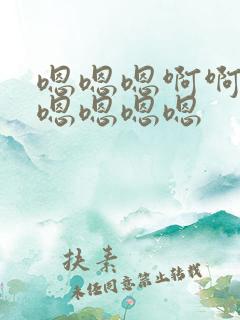 嗯嗯嗯啊啊
嗯嗯嗯嗯
扶素
未经同意禁止转载